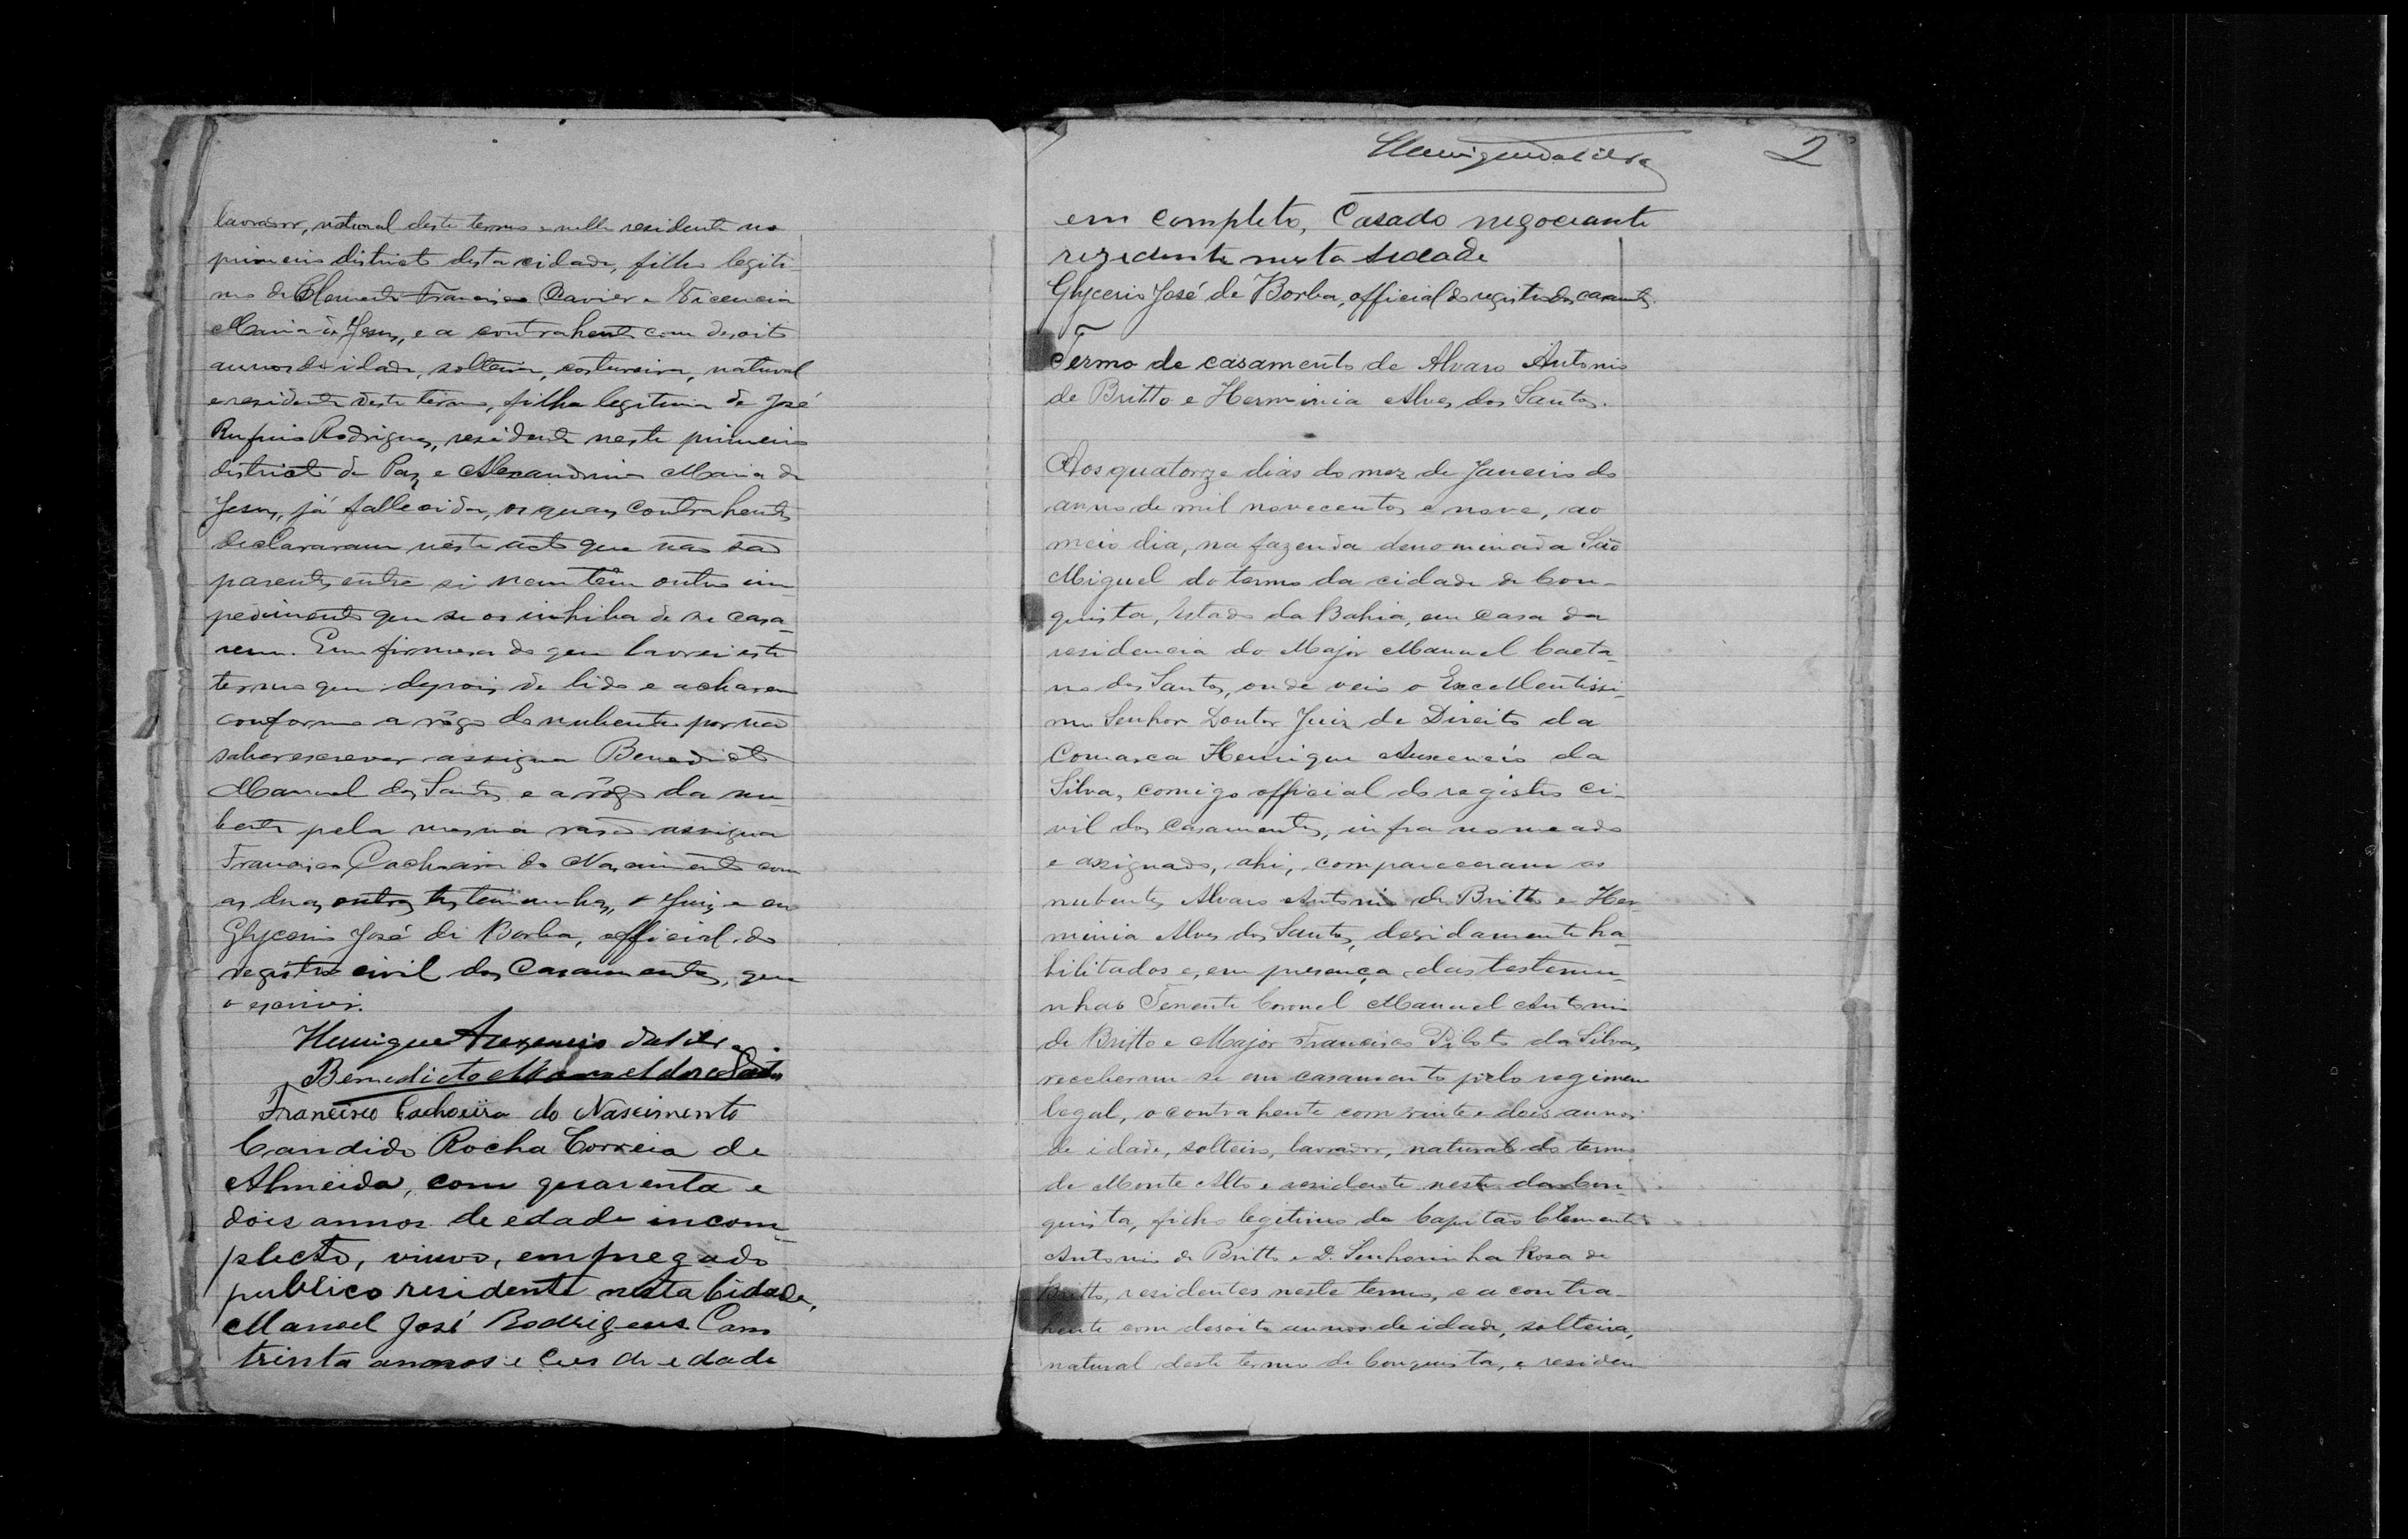 lavrador, natural deste termo e nelle residente no
primeiro districto desta cidade, filho legiti-
mo de Clemente Francisco Xavier e Vicencia
Maria de Jesus, e a contrahente com desoito
annos de idade, solteira, costureira, natural
e residente deste termo, filha legitima de José
Rufino Rodrigues, residente neste primeiro
districto de Paz e Alexandrina Maria de
Jesus, já fallecida, os quaes contrahentes
declararam neste acto que não são
parentes entre si nem têm outro im-
pedimento que se os inhiba de se casa-
rem. Em firmesa do que lavrei este
termo que depois de lido e acharem
conforme a rôgo do nubente por não
saber escrever assigna Benedicto
Manoel dos Santos e a rôgo da nu-
bente pela mesma rasão assigna
Francisco Cachoeira do Nascimento com
as duas outras testemunhas, o Juiz e eu
Glycerio José de Borba, official do
registro civil dos Casamentos, que
o escrivi.
Henrique Auxencio da Silva.
Benedicto Manoel dos Santos
Francisco Cachoeira do Nascimento
Candido Rocha Correia de
Almeida, com quarenta e
dois annos de edade incom-
plecto, viuvo, empregado
publico residente nesta Cidade,
Manoel José Rodrigues Com
trinta annos e de edade
Henrique da Silva
2
em completo, Casado negociante
rezedente nesta
Glycerio José de Borba, official do registro dos casamtos.
Termo de casamento de Alvaro Antonio
de Britto e Herminia Alves dos Santos.
Aos quatorze dias do mez de Janeiro do
anno de mil novecentos e nove, ao
meio dia, na fazenda denominada São
Miguel do termo da cidade de Con-
quista, Estado da Bahia, em casa da
residencia do Major Manuel Caeta-
no dos Santos, onde veio o Excellentissi-
mo Senhor Doutor Juiz de Direito da
Comarca Henrique Auxencio da
Silva, comigo official do registro ci-
vil dos casamentos, infra nomeado
e assignado, ahi, compareceram os
nubentes Alvaro Antonio de Britto e Her-
minia Alves dos Santos, devidamente ha-
bilitados e, em presença das testemu-
nhas Tenente Coronel Manuel Antonio
de Britto e Major Francisco Piloto da Silva,
receberam se em casamento pelo regimen
legal, o contrahente com vinte e dois annos
de idade, solteiro, lavrador, natural do termo
de Monte Alto e residente neste da Con-
quista, filho legitimo do Capitão Clemente
Antonio de Britto e D. Senhorinha Rosa de
Britto, residentes neste termo, e a contra-
hente com desoito annos de idade, solteira,
natural deste termo de Conquista, e residen